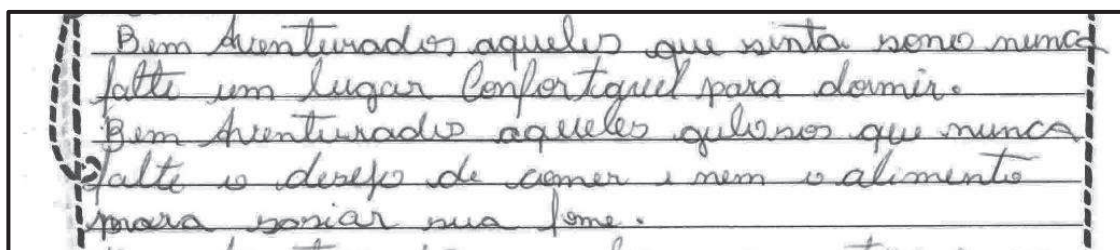 Bem Aventurados aqueles que sinta sono nunca
falte um lugar Confortavel para dormir.
Bem Aventurados aqueles gulosos que nunca
falte o desejo de comer e nem o alimento
para sasiar sua fome.